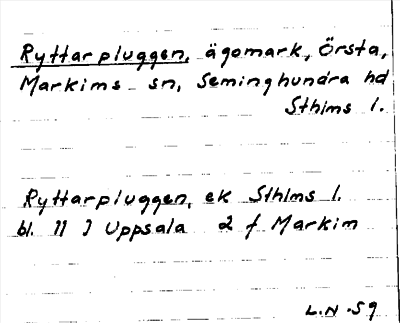 Ryttarpluggen, ägomark, Örsta,
Markims sn, Seminghundra hd
Sthlms l.
Ryttarpluggen, ek Sthlms l.
bl. 11 I Uppsala 2 f Markim
L.N. 59